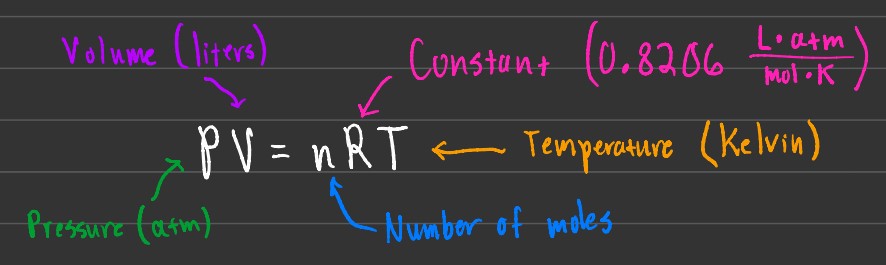 Volume (liters)
Constant (0.8206 L·atm/mol·K)
PV = nRT
Temperature (Kelvin)
Pressure (atm)
Number of moles